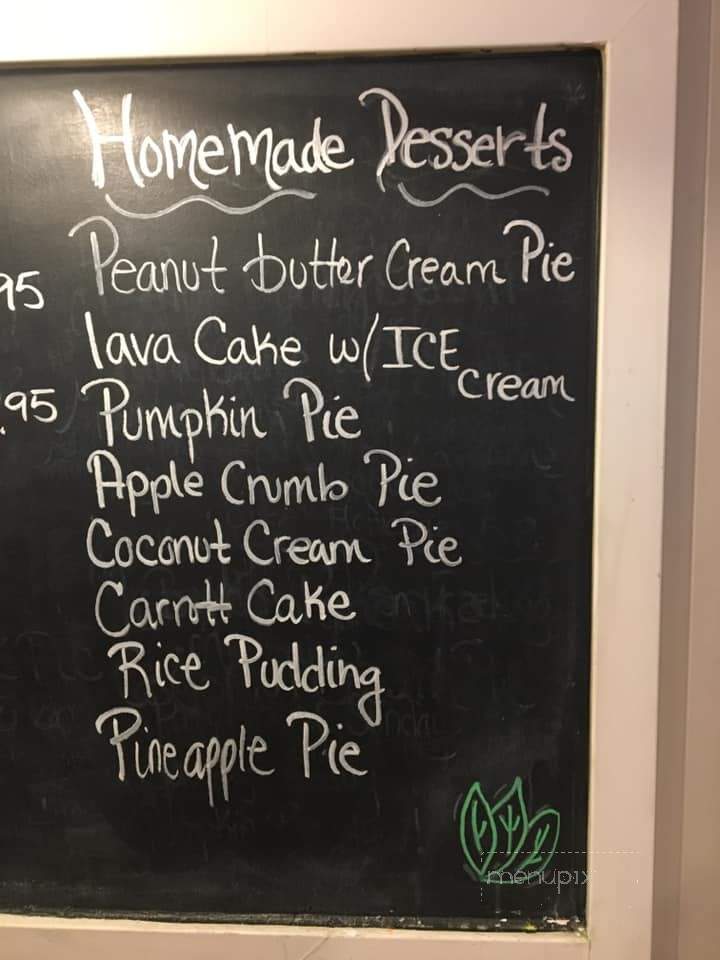 Homemade Desserts
Peanut butter Cream Pie
95
lava Cake w/ ICE
cream
.95
Pumpkin Pie
Apple Crumb Pie
Coconut Cream Pie
Carrott Cake
Rice Pudding
Pineapple Pie
menupix